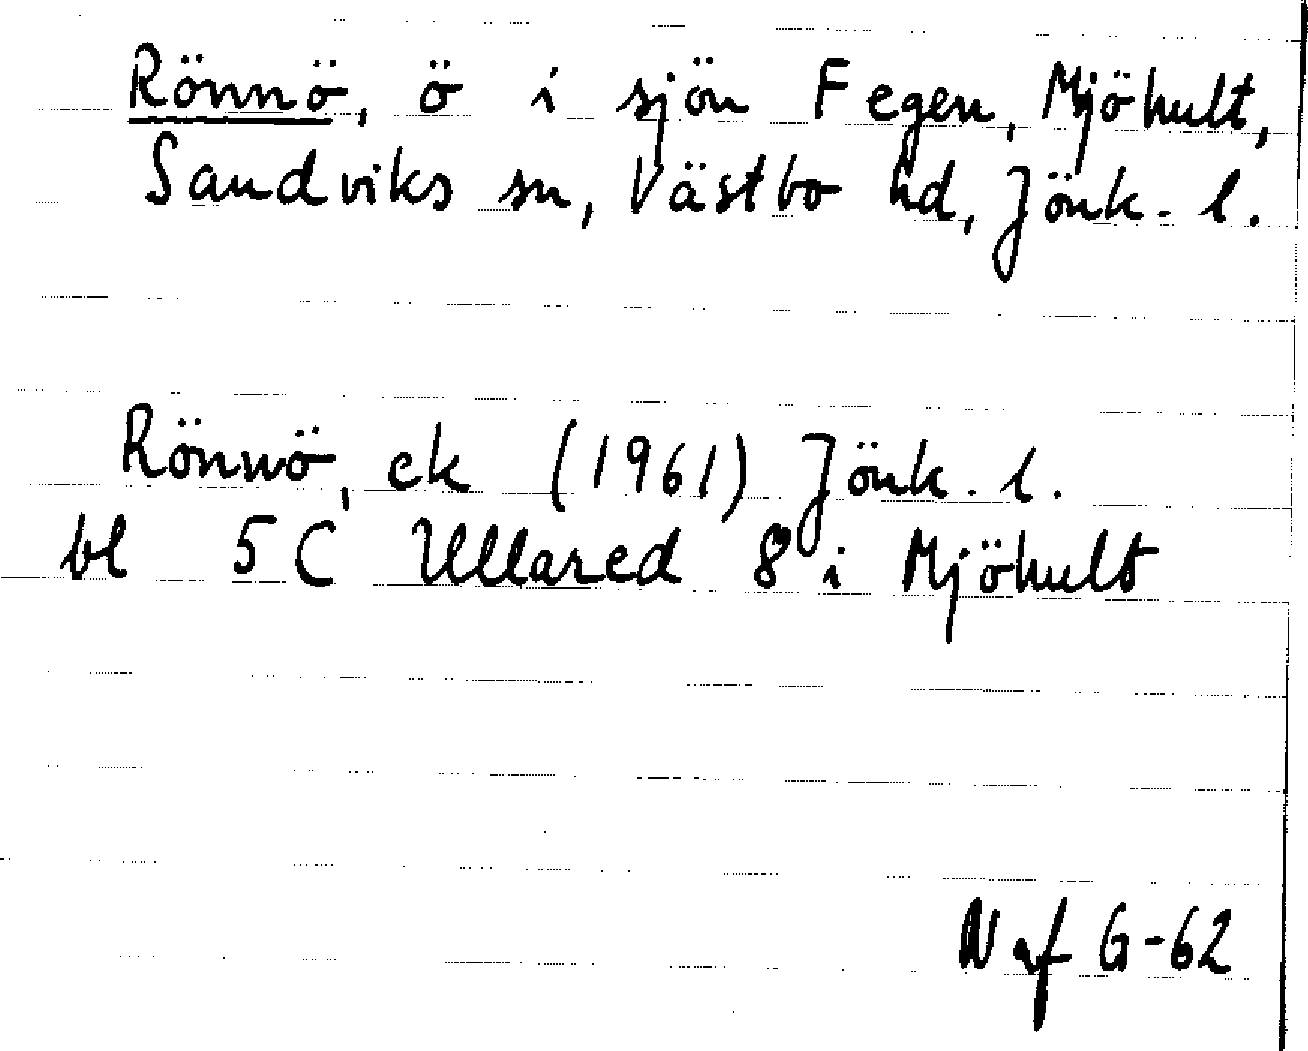 Rönnö, ö i sjön Fegen, Mjöhult,
Sandviks sn, Västbo hd, Jönk. l.
Rönnö, ek (1961) Jönk. l.
bl 5C Ullared 8 i Mjöhult
N af G-62